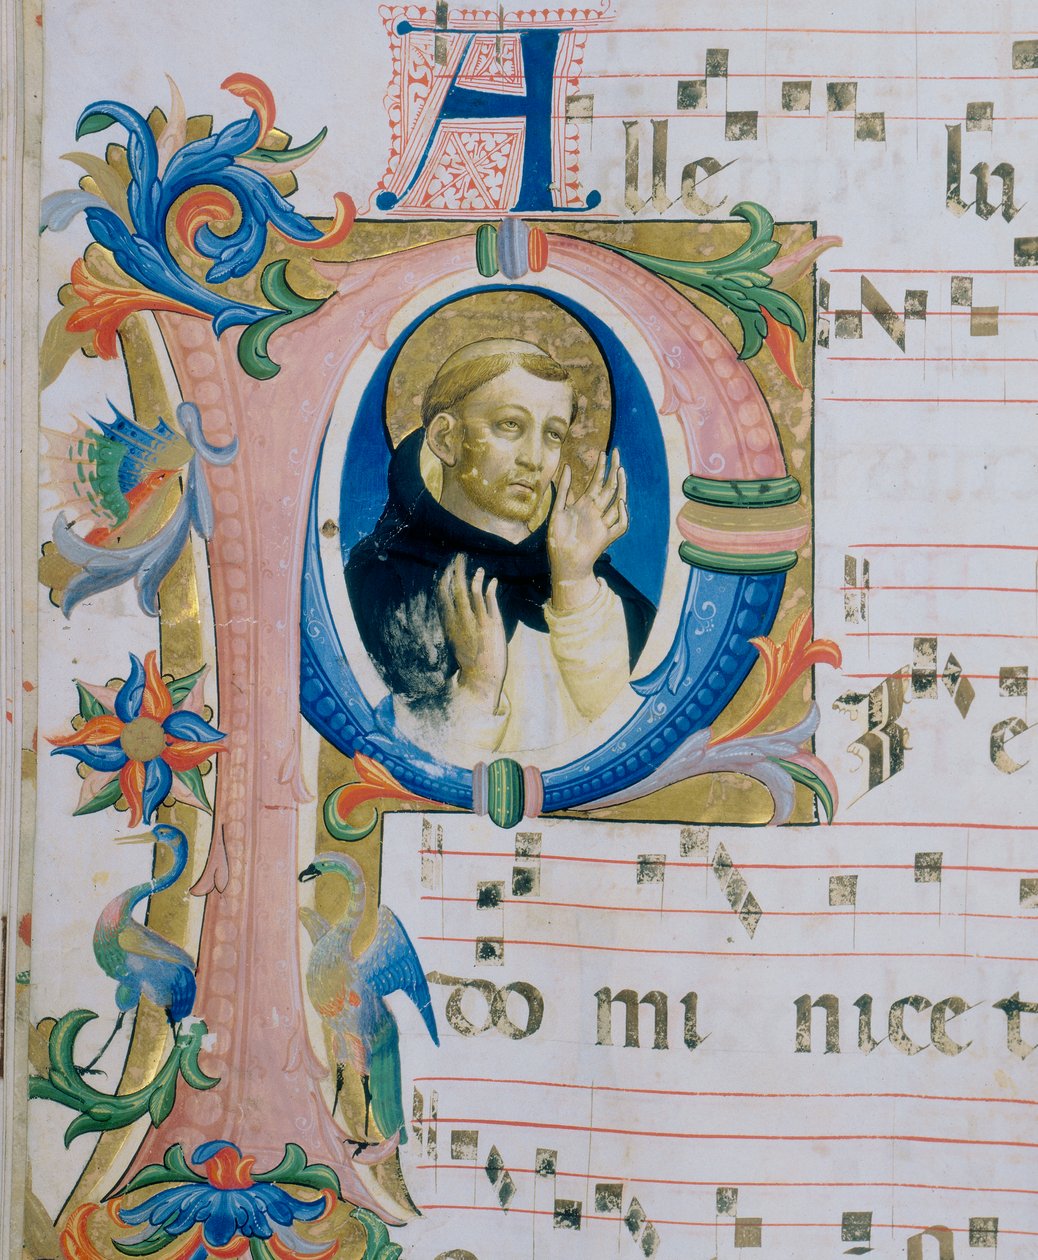 A lle lu
P I e
do mi nice t